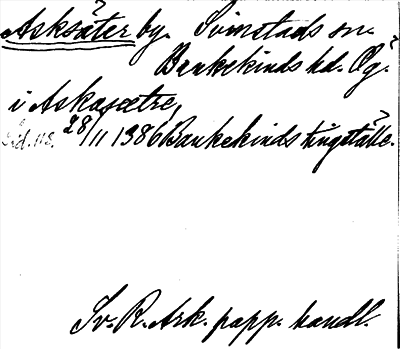 Asksäter by. Svinstads sn.
Bankekinds hd. Ög.
i Askasætre,
Sid. 118. 28/11 1386 Bankekinds tingställe.
Sv. R. Ark. papp. handl.